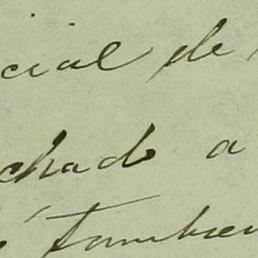 cial de
chado a
tambien